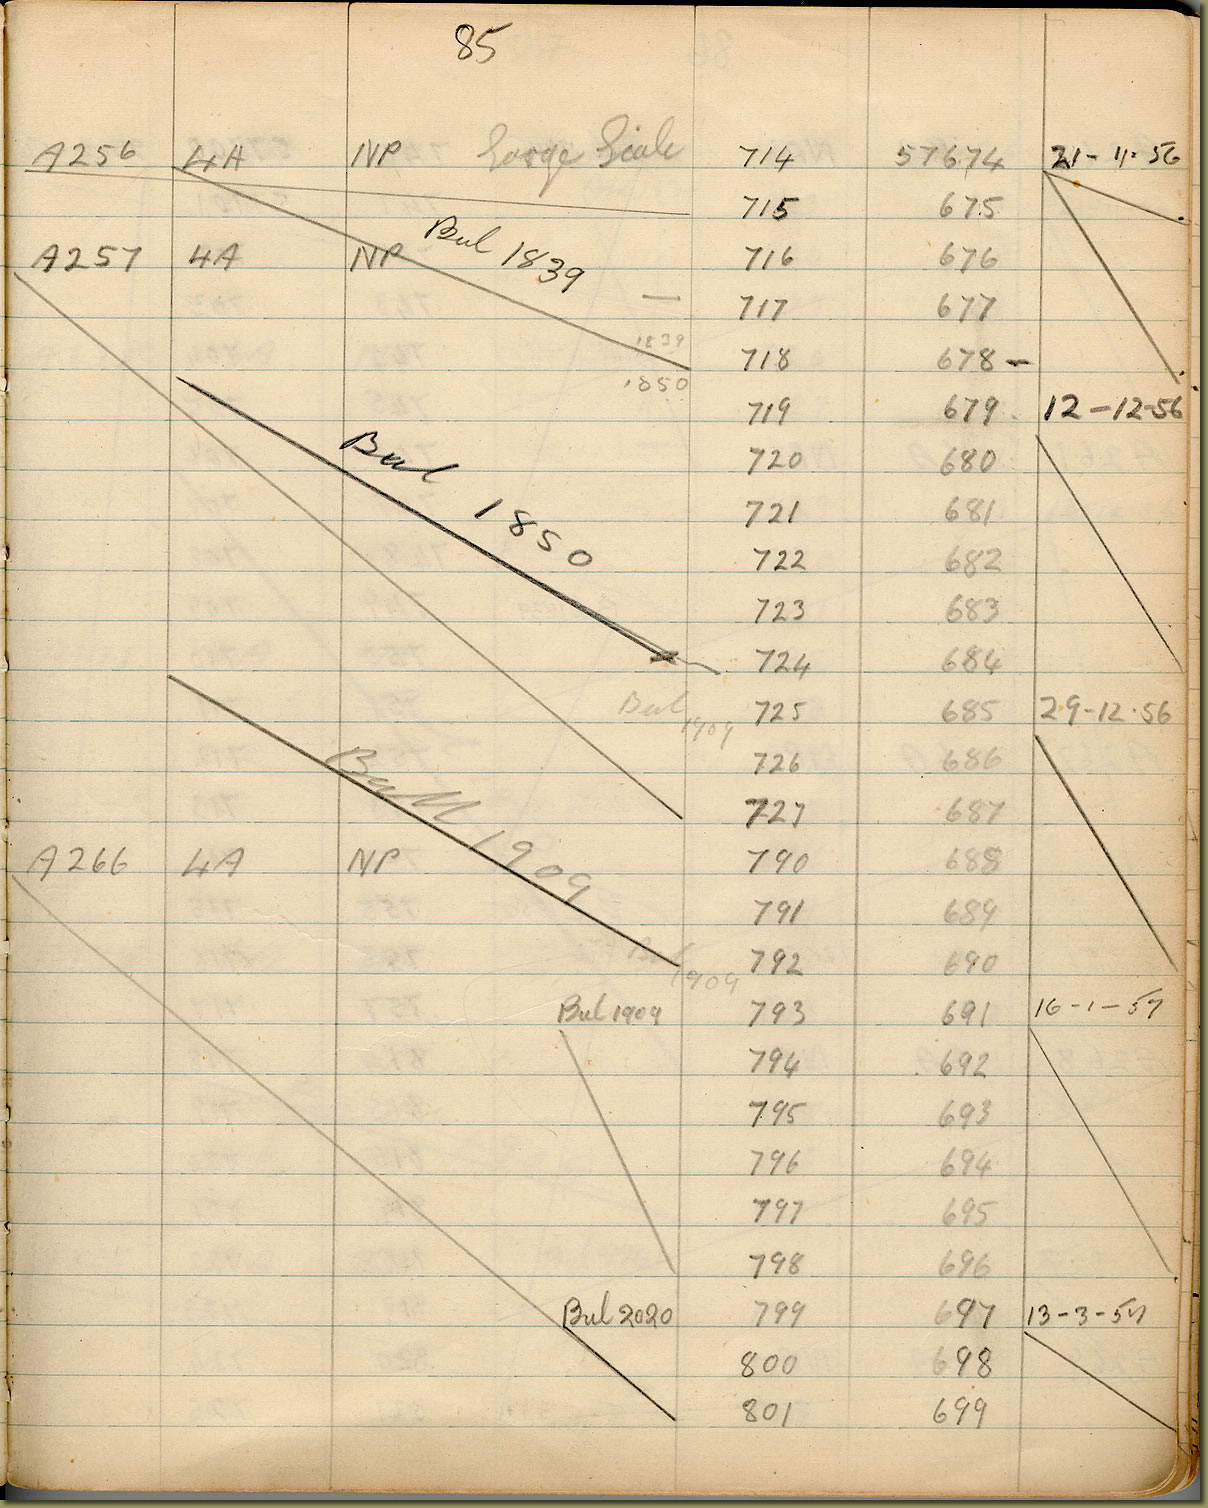 85
A256 4A NP Large Scale 714 57674 21-11-56
715 675
A257 4A NP Bul 1839 716 676
— 717 677
1839 718 678 –
1850 719 679 12-12-56
Bul 720 680
1850 721 681
722 682
723 683
724 684
Bul 1909 725 685 29-12-56
726 686
Bull 1909 727 687
A266 4A NP 790 688
791 689
Bul 1909 792 690
Bul 1909 793 691 16-1-57
794 692
795 693
796 694
797 695
798 696
Bul 2020 799 697 13-3-57
800 698
801 699